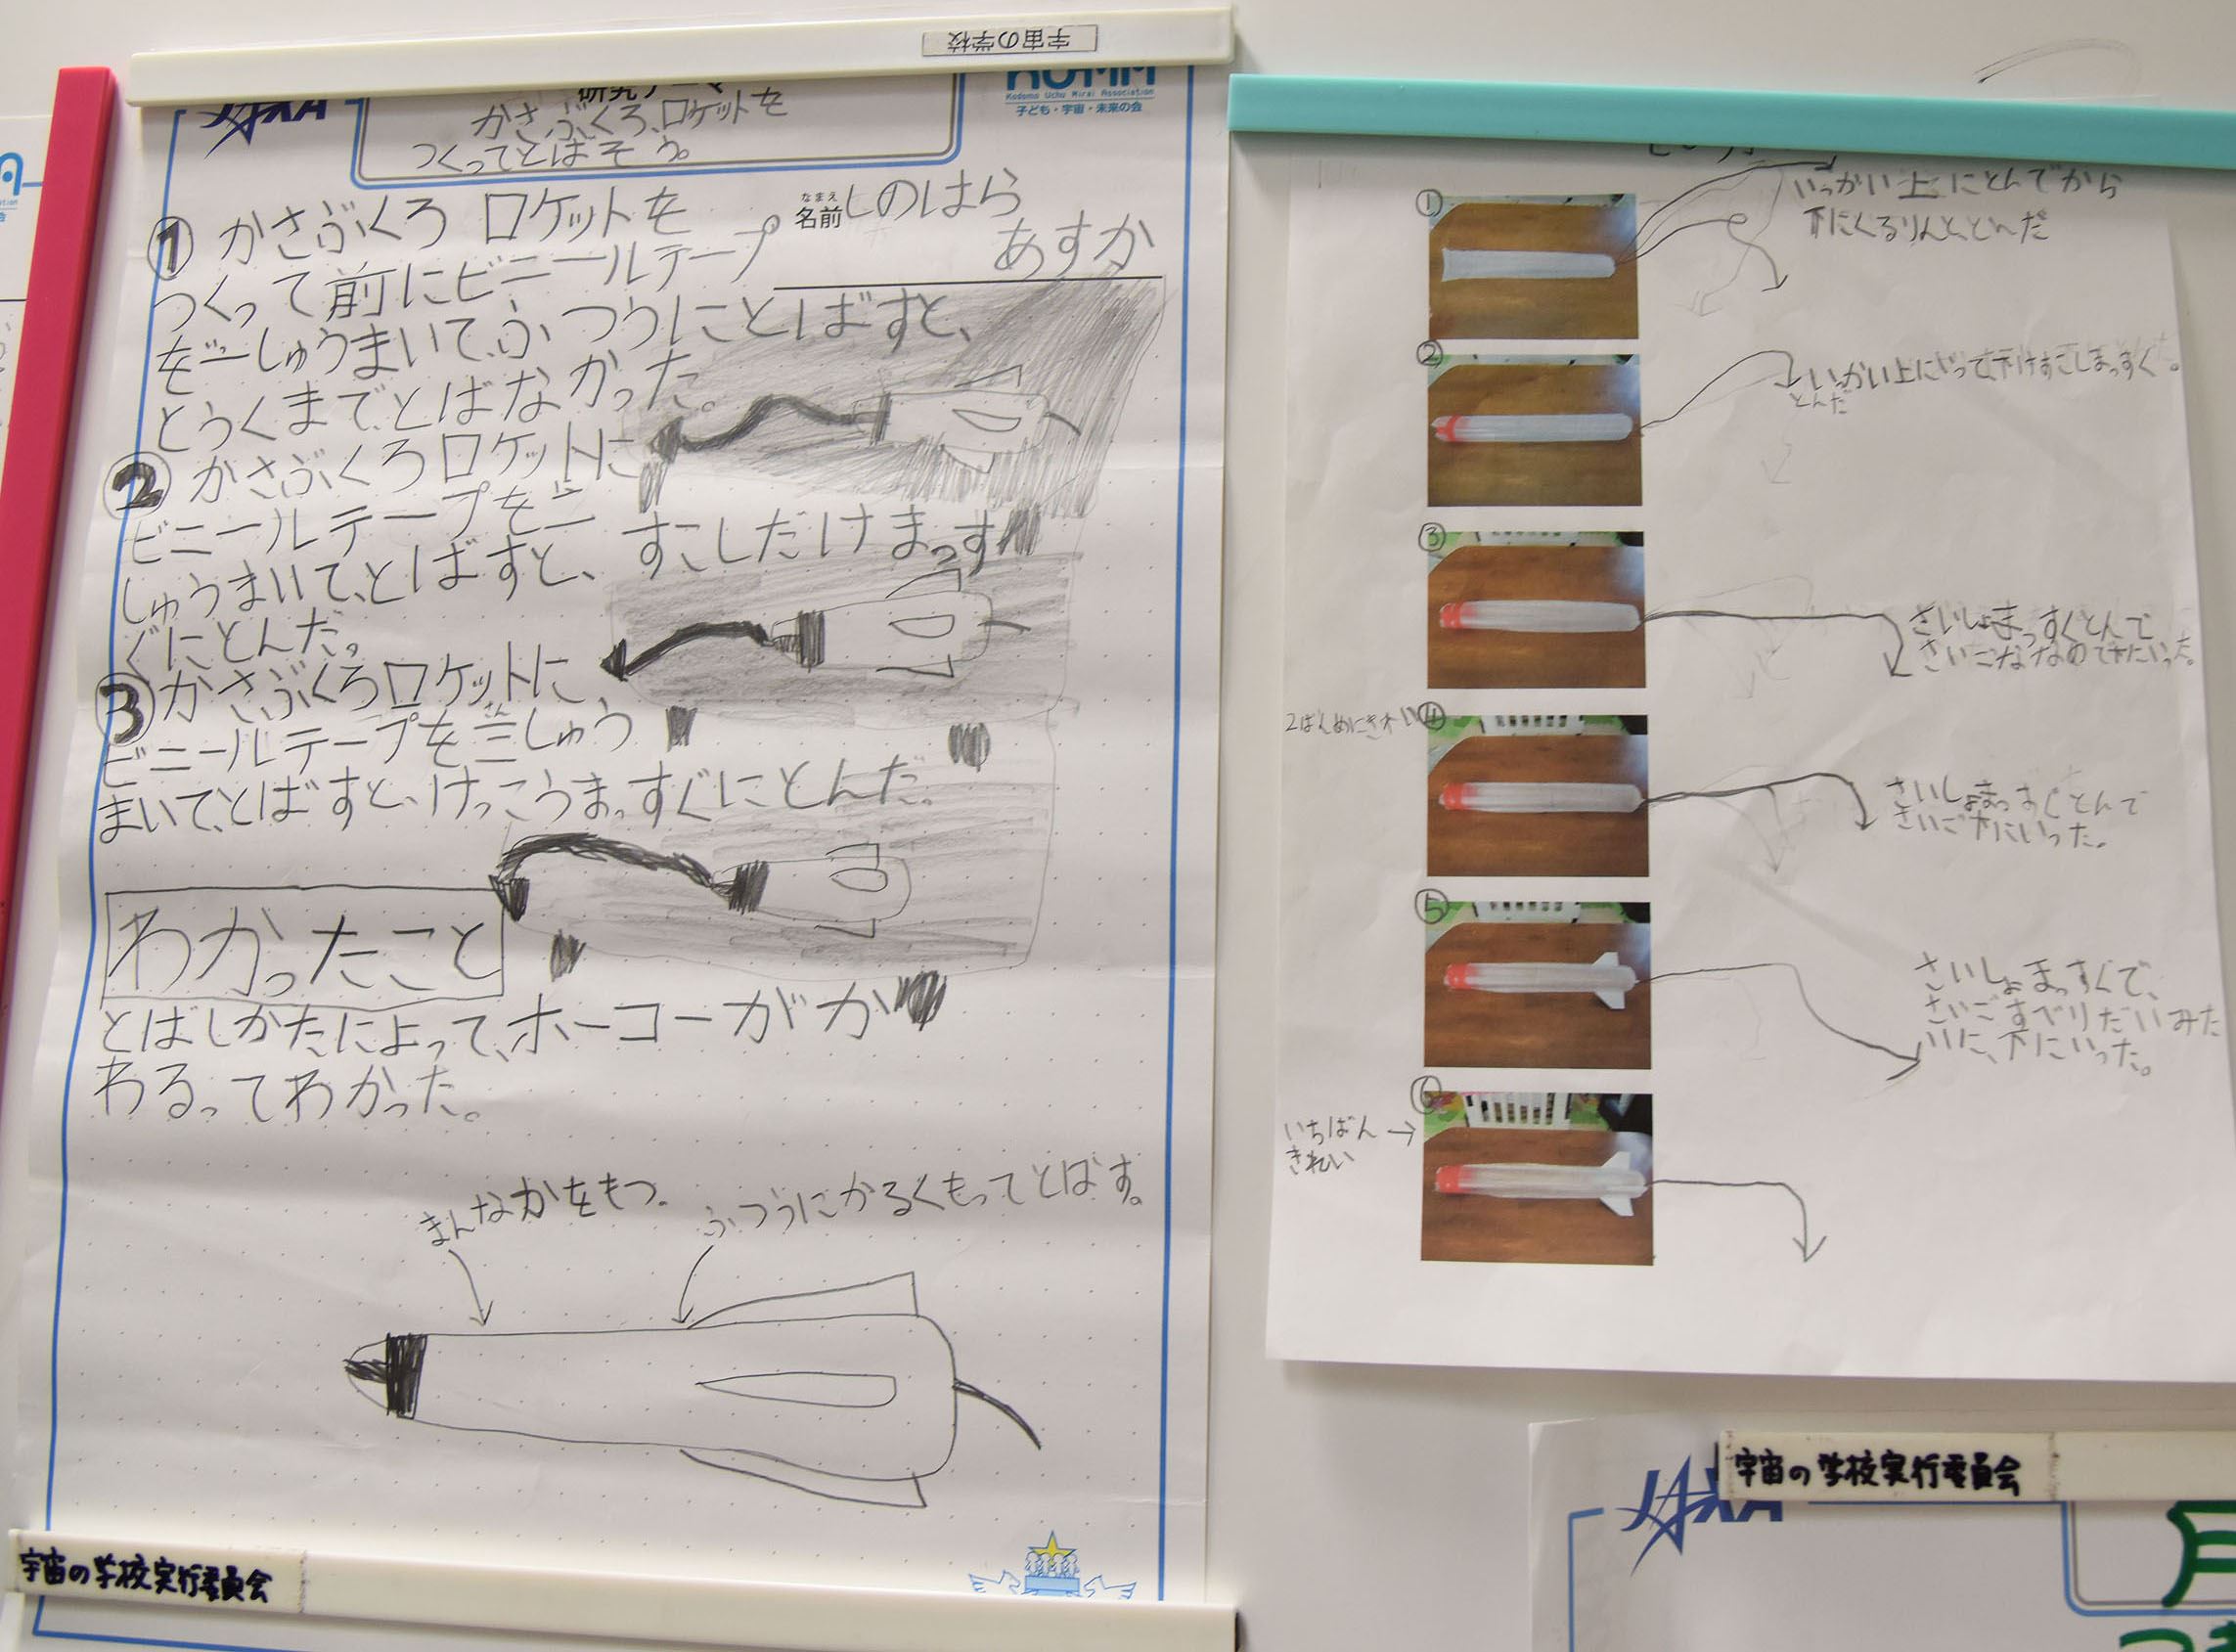 宇宙の学校
JAXA
研究テーマ
KU-MA
Kodomo Uchu Mirai Association
子ども・宇宙・未来の会
かさぶくろロケットを
つくってとばそう。
なまえ
名前 しのはら
あすか
① かさぶくろ ロケットを
つくって前にビニールテープ
を一しゅうまいて、ふつうにとばすと、
とうくまでとばなかった。
② かさぶくろロケットに
ビニールテープを二
しゅうまいて、とばすと、すこしだけまっす
ぐにとんだ。
③ かさぶくろロケットに
ビニールテープを三しゅう
まいて、とばすと、けっこうまっすぐにとんだ。
わかったこと
とばしかたによって、ホーコーがか
わるってわかった。
まんなかをもつ。
ふつうにかるくもってとばす。
宇宙の学校実行委員会
①
いっかい上にとんでから
下にくるりんと、とんだ
②
いっかい上にいって、下けすこしまっすぐ。
とんだ
③
さいしょまっすぐとんで
さいごななめで下にいった。
2ばんめにきれい ④
さいしょまっすぐとんで
さいご下にいった。
⑤
さいしょまっすぐで、
さいごすべりだいみた
いに、下にいった。
⑥
いちばん →
きれい
宇宙の学校実行委員会
JAXA
月